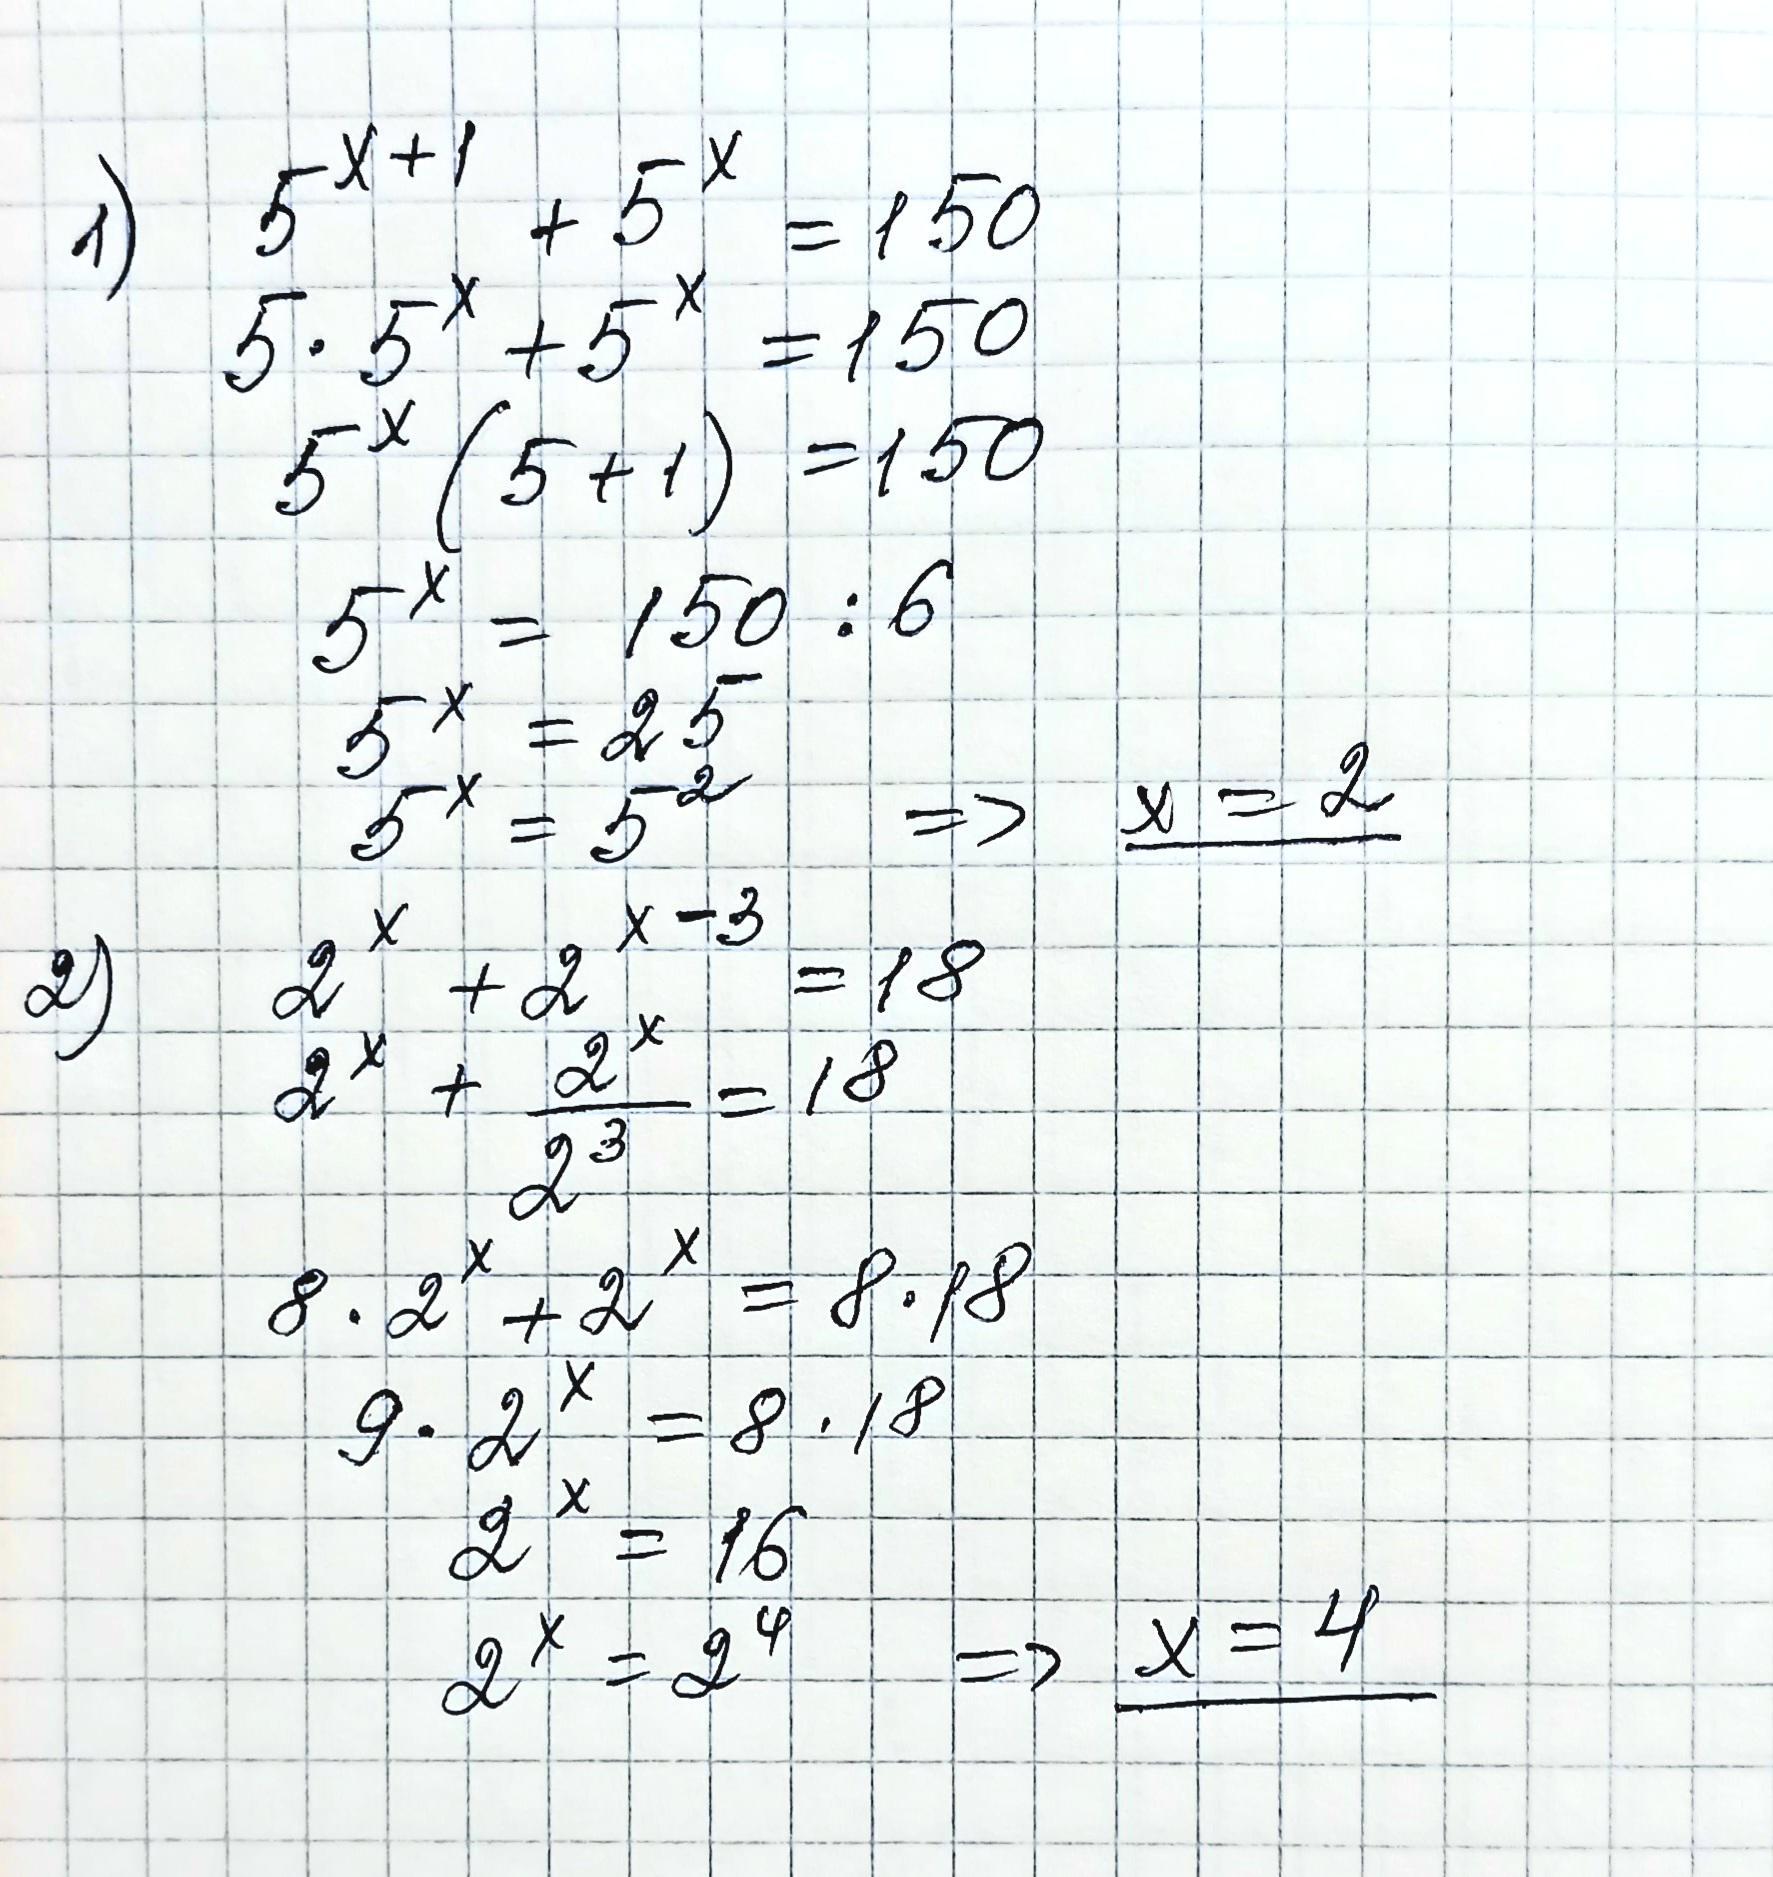 1) 5^{x+1} + 5^x = 150
5 · 5^x + 5^x = 150
5^x (5 + 1) = 150
5^x = 150 : 6
5^x = 25
5^x = 5^2 => x = 2
2) 2^x + 2^{x-3} = 18
2^x + \frac{2^x}{2^3} = 18
8 · 2^x + 2^x = 8 · 18
9 · 2^x = 8 · 18
2^x = 16
2^x = 2^4 => x = 4